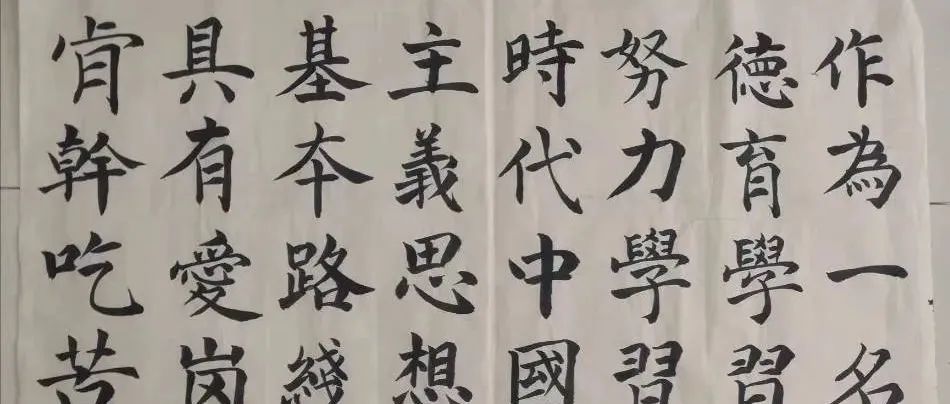 作為一名
德育學習
努力學習
時代中國
主義思想
基本路綫
具有愛崗
肯幹吃苦